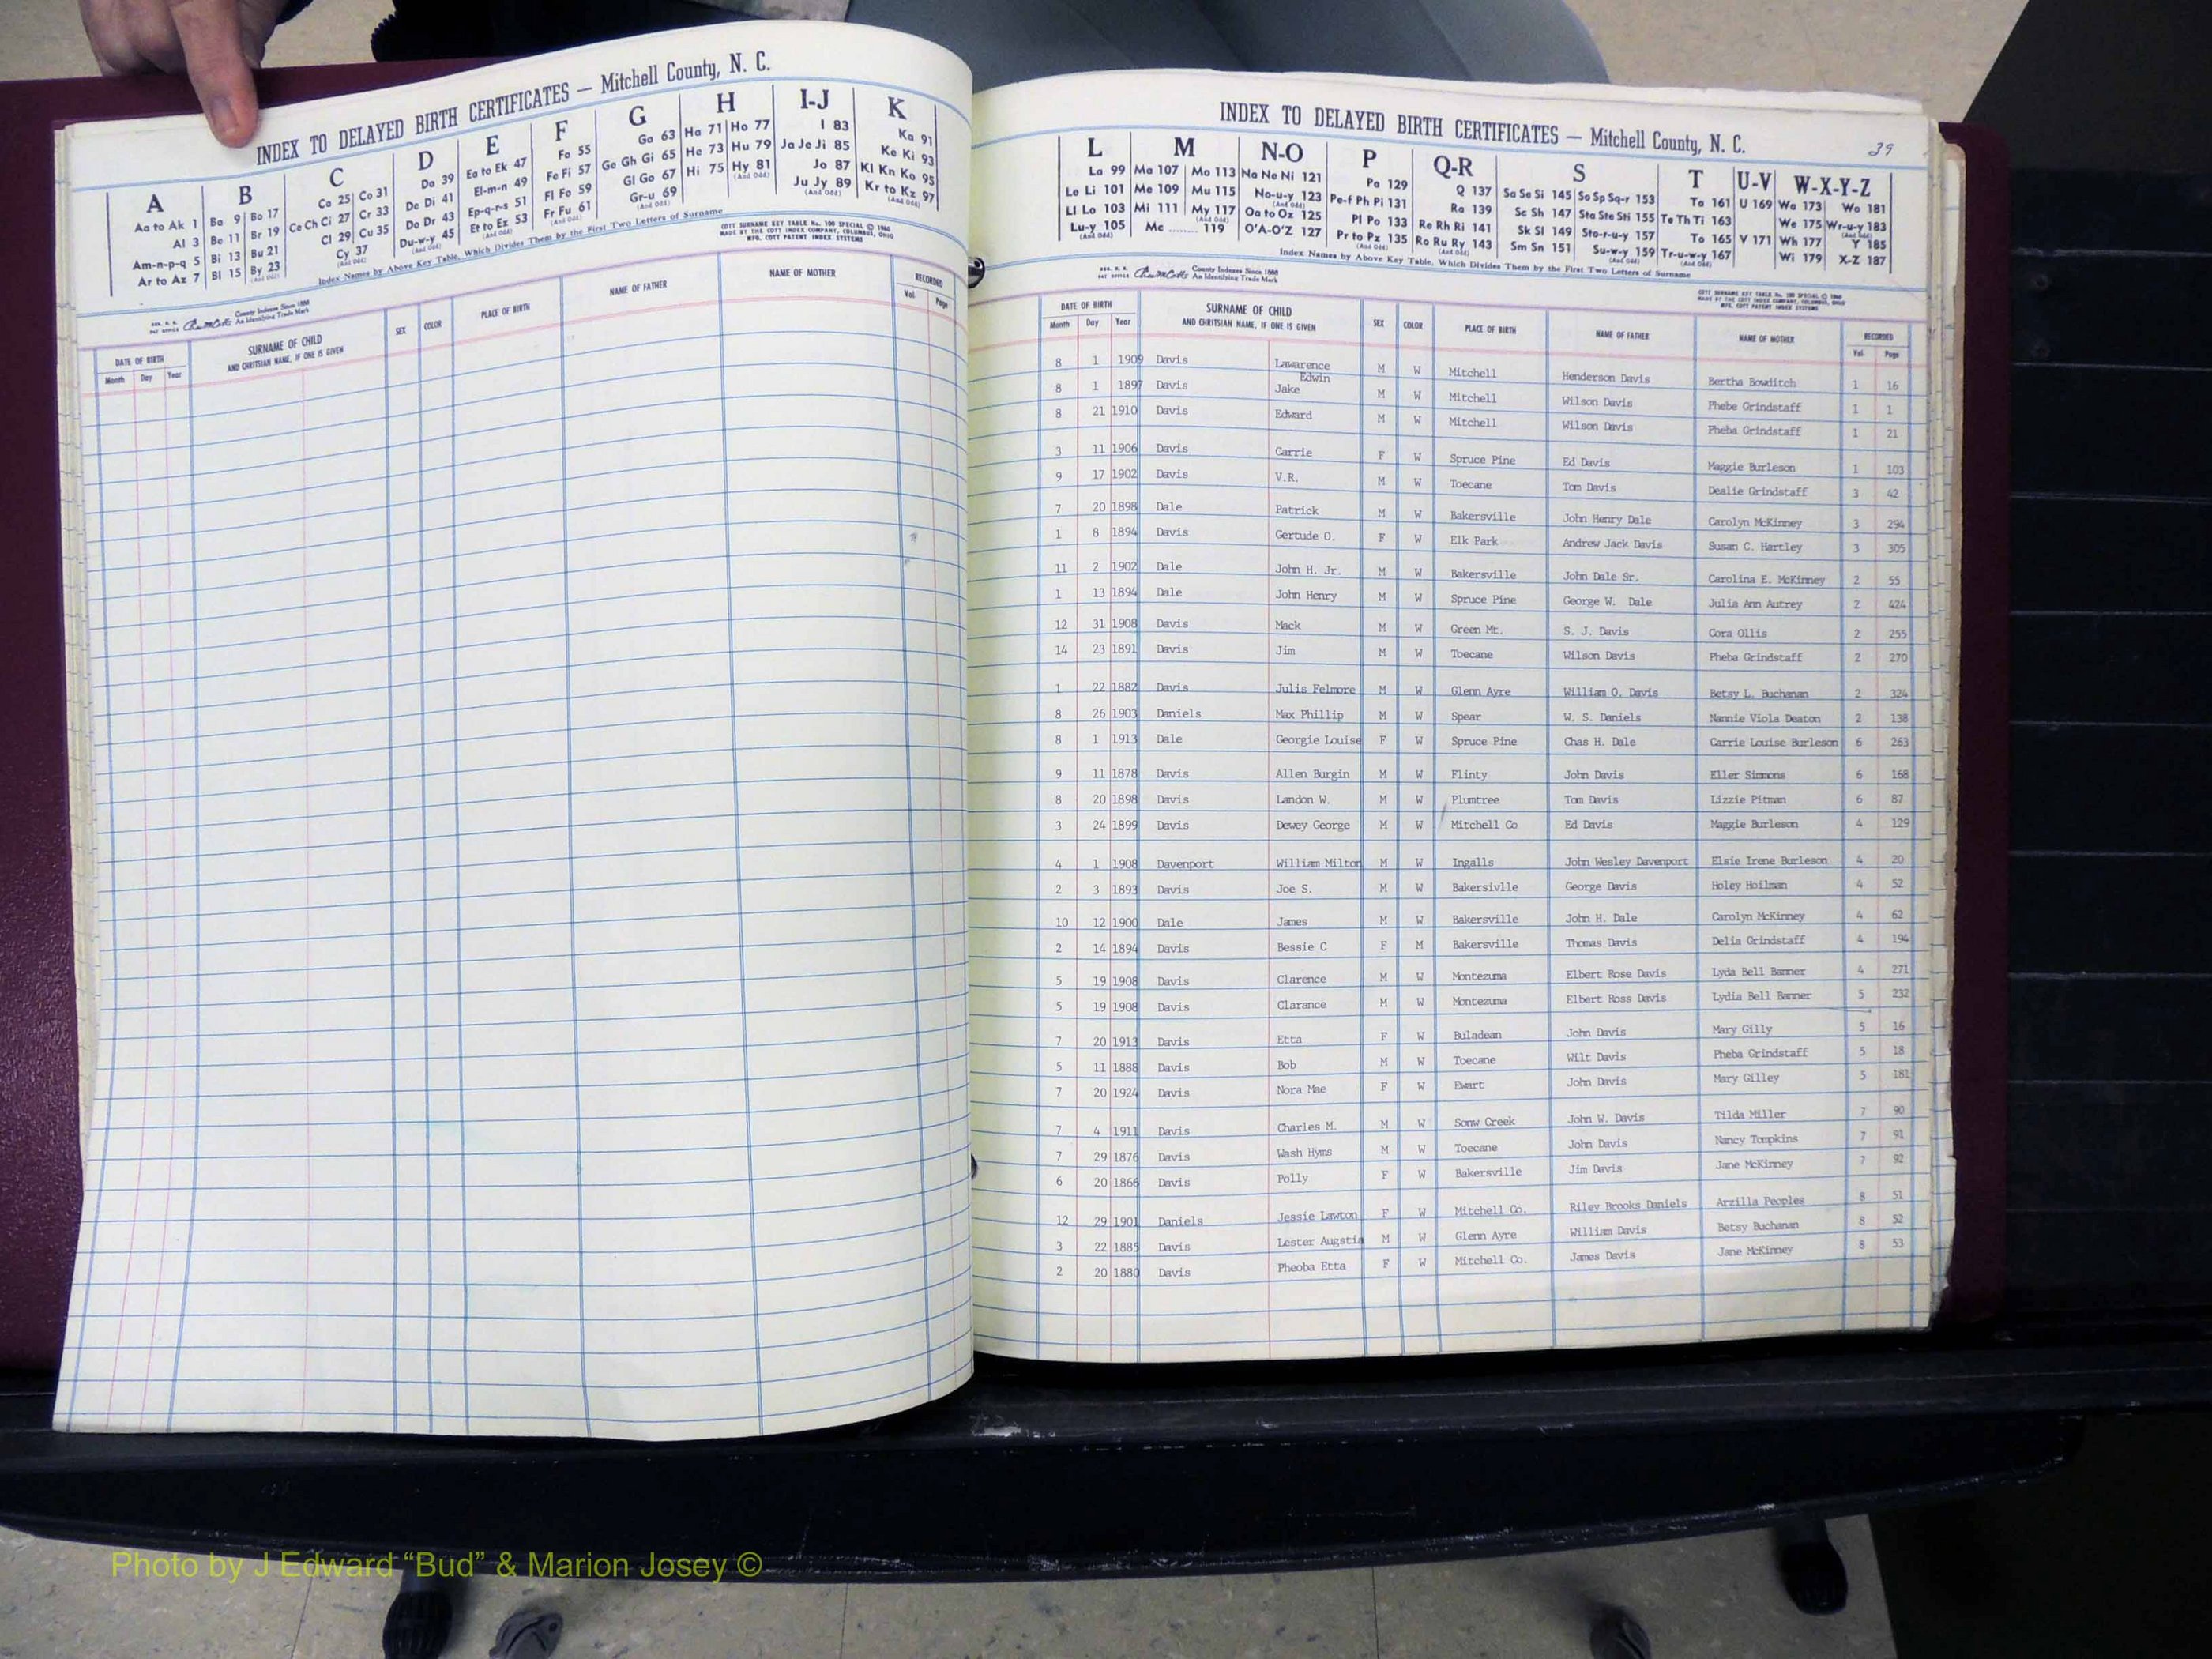 INDEX TO DELAYED BIRTH CERTIFICATES — Mitchell County, N. C.
A B C D E F G H I-J K
Aa to Ak 1 Ba 9 Bo 17 Ca 25 Co 31 Da 39 Ea to Ek 47 Fa 55 Ga 63 Ha 71 Ho 77 I 83 Ka 91
Al 3 Be 11 Br 19 Ce Ch Ci 27 Cr 33 De Di 41 El-m-n 49 Fe Fi 57 Ge Gh Gi 65 He 73 Hu 79 Ja Je Ji 85 Ke Ki 93
Am-n-p-q 5 Bi 13 Bu 21 Cl 29 Cu 35 Do Dr 43 Ep-q-r-s 51 Fl Fo 59 Gl Go 67 Hi 75 Hy 81 Jo 87 Kl Kn Ko 95
Ar to Az 7 Bl 15 By 23 Cy 37 Du-w-y 45 Et to Ez 53 Fr Fu 61 Gr-u 69 Ju Jy 89 Kr to Kz 97
(And Odd) (And Odd) (And Odd) (And Odd) (And Odd) (And Odd) (And Odd) (And Odd) (And Odd)
Index Names by Above Key Table, Which Divides Them by the First Two Letters of Surname
COTT SURNAME KEY TABLE No. 100 SPECIAL © 1960
MADE BY THE COTT INDEX COMPANY, COLUMBUS, OHIO
MFG. COTT PATENT INDEX SYSTEMS
County Indexes Since 1888
An Identifying Trade Mark
DATE OF BIRTH SURNAME OF CHILD SEX COLOR PLACE OF BIRTH NAME OF FATHER NAME OF MOTHER RECORDED
Month Day Year AND CHRITSIAN NAME, IF ONE IS GIVEN Vol. Page
INDEX TO DELAYED BIRTH CERTIFICATES — Mitchell County, N. C.
39
L M N-O P Q-R S T U-V W-X-Y-Z
La 99 Ma 107 Mo 113 Na Ne Ni 121 Pa 129 Q 137 Sa Se Si 145 So Sp Sq-r 153 Ta 161 U 169 Wa 173 Wo 181
Le Li 101 Me 109 Mu 115 No-u-y 123 Pe-f Ph Pi 131 Ra 139 Sc Sh 147 Sta Ste Sti 155 Te Th Ti 163 We 175 Wr-u-y 183
Ll Lo 103 Mi 111 My 117 Oa to Oz 125 Pl Po 133 Re Rh Ri 141 Sk Sl 149 Sto-r-u-y 157 To 165 V 171 Wh 177 Y 185
Lu-y 105 Mc ........ 119 O'A-O'Z 127 Pr to Pz 135 Ro Ru Ry 143 Sm Sn 151 Su-w-y 159 Tr-u-w-y 167 Wi 179 X-Z 187
(And Odd) (And Odd) (And Odd) (And Odd) (And Odd) (And Odd) (And Odd) (And Odd)
Index Names by Above Key Table, Which Divides Them by the First Two Letters of Surname
County Indexes Since 1888
An Identifying Trade Mark
COTT SURNAME KEY TABLE No. 100 SPECIAL © 1960
MADE BY THE COTT INDEX COMPANY, COLUMBUS, OHIO
MFG. COTT PATENT INDEX SYSTEMS
DATE OF BIRTH SURNAME OF CHILD SEX COLOR PLACE OF BIRTH NAME OF FATHER NAME OF MOTHER RECORDED
Month Day Year AND CHRITSIAN NAME, IF ONE IS GIVEN Vol. Page
8 1 1909 Davis Lawarence Edwin M W Mitchell Henderson Davis Bertha Bowditch 1 16
8 1 1897 Davis Jake M W Mitchell Wilson Davis Phebe Grindstaff 1 1
8 21 1910 Davis Edward M W Mitchell Wilson Davis Pheba Grindstaff 1 21
3 11 1906 Davis Carrie F W Spruce Pine Ed Davis Maggie Burleson 1 103
9 17 1902 Davis V.R. M W Toecane Tom Davis Dealie Grindstaff 3 42
7 20 1898 Dale Patrick M W Bakersville John Henry Dale Carolyn McKinney 3 294
1 8 1894 Davis Gertude O. F W Elk Park Andrew Jack Davis Susan C. Hartley 3 305
11 2 1902 Dale John H. Jr. M W Bakersville John Dale Sr. Carolina E. McKinney 2 55
1 13 1894 Dale John Henry M W Spruce Pine George W. Dale Julia Ann Autrey 2 424
12 31 1908 Davis Mack M W Green Mt. S. J. Davis Cora Ollis 2 255
14 23 1891 Davis Jim M W Toecane Wilson Davis Pheba Grindstaff 2 270
1 22 1882 Davis Julis Felmore M W Glenn Ayre William O. Davis Betsy L. Buchanan 2 324
8 26 1903 Daniels Max Phillip M W Spear W. S. Daniels Nannie Viola Deaton 2 138
8 1 1913 Dale Georgie Louise F W Spruce Pine Chas H. Dale Carrie Louise Burleson 6 263
9 11 1878 Davis Allen Burgin M W Flinty John Davis Eller Simmons 6 168
8 20 1898 Davis Landon W. M W Plumtree Tom Davis Lizzie Pitman 6 87
3 24 1899 Davis Dewey George M W Mitchell Co Ed Davis Maggie Burleson 4 129
4 1 1908 Davenport William Milton M W Ingalls John Wesley Davenport Elsie Irene Burleson 4 20
2 3 1893 Davis Joe S. M W Bakersivlle George Davis Holey Hoilman 4 52
10 12 1900 Dale James M W Bakersville John H. Dale Carolyn McKinney 4 62
2 14 1894 Davis Bessie C F M Bakersville Thomas Davis Delia Grindstaff 4 194
5 19 1908 Davis Clarence M W Montezuma Elbert Rose Davis Lyda Bell Banner 4 271
5 19 1908 Davis Clarance M W Montezuma Elbert Ross Davis Lydia Bell Banner 5 232
7 20 1913 Davis Etta F W Buladean John Davis Mary Gilly 5 16
5 11 1888 Davis Bob M W Toecane Wilt Davis Pheba Grindstaff 5 18
7 20 1924 Davis Nora Mae F W Ewart John Davis Mary Gilley 5 181
7 4 1911 Davis Charles M. M W Sonw Creek John W. Davis Tilda Miller 7 90
7 29 1876 Davis Wash Hyms M W Toecane John Davis Nancy Tompkins 7 91
6 20 1866 Davis Polly F W Bakersville Jim Davis Jane McKinney 7 92
12 29 1901 Daniels Jessie Lawton F W Mitchell Co. Riley Brooks Daniels Arzilla Peoples 8 51
3 22 1885 Davis Lester Augstia M W Glenn Ayre William Davis Betsy Buchanan 8 52
2 20 1880 Davis Pheoba Etta F W Mitchell Co. James Davis Jane McKinney 8 53
Photo by J Edward “Bud” & Marion Josey ©